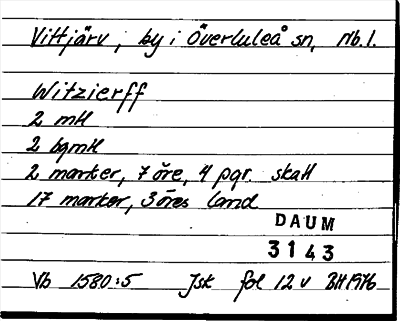 Vittjärv, by i Överluleå sn, Nb.l.
Witzierff
2 mtl
2 bgmtl
2 marker, 7 öre, 4 pgr. skatt
17 marker, 3 öres land
DAUM
3143
Vb 1580:5 Jsk fol 12 v BH 1976